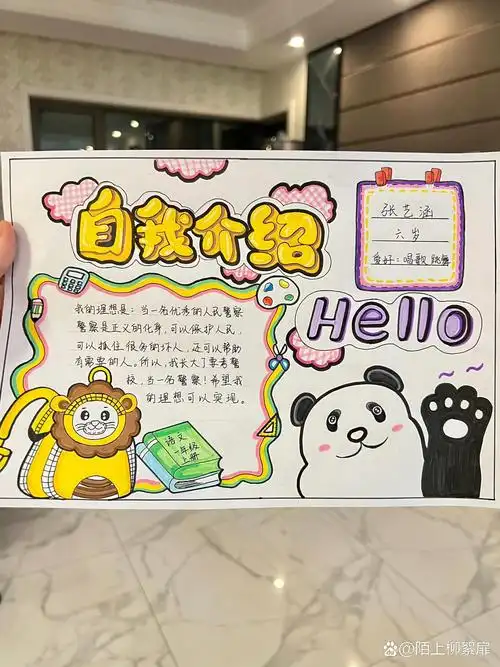 自我介绍
张艺涵
六岁
爱好：唱歌 跳舞
Hello
我的理想是：当一名优秀的人民警察
警察是正义的化身，可以保护人民，
可以抓住很多的坏人，还可以帮助
有需要的人。所以，我长大了要考警
校，当一名警察！希望我
的理想可以实现。
语文
一年级
上册
陌上柳絮扉